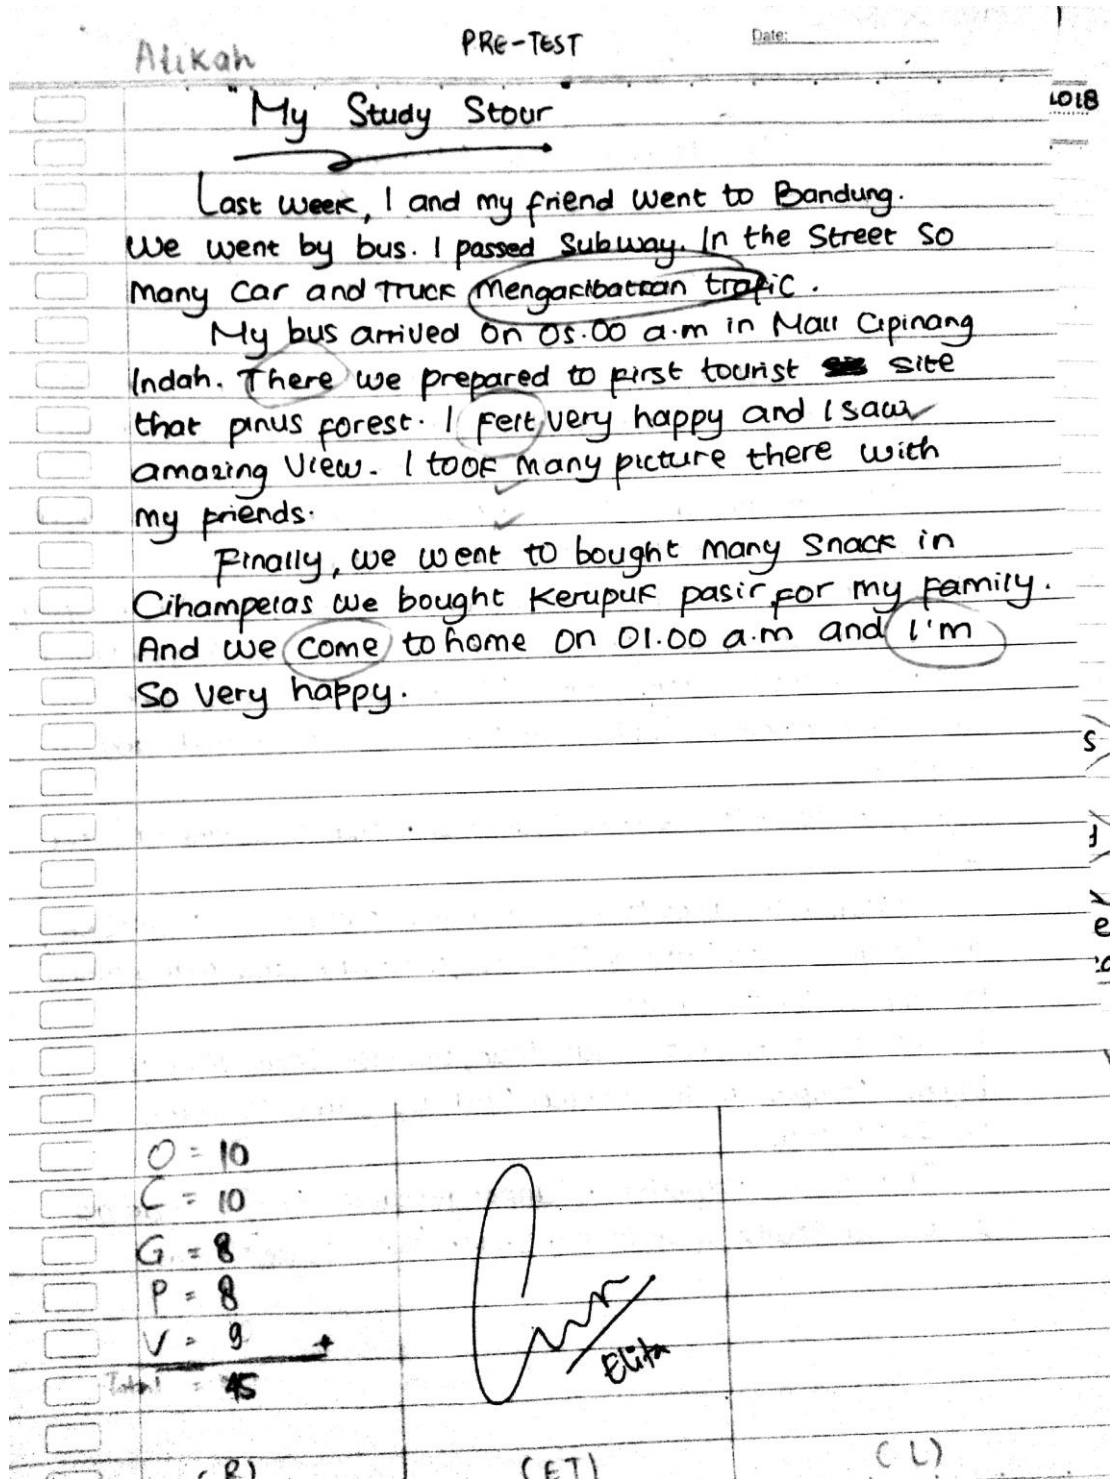 Atikah
PRE-TEST
Date:
1018
"My Study Stour
Last week, I and my friend went to Bandung.
We went by bus. I passed Subway. In the Street So
many car and Truck mengakibatkan trafic.
My bus arrived on 05.00 a.m in Mall Cipinang
Indah. There we prepared to first tourist site
that pinus forest. I felt very happy and I saw
amazing View. I took many picture there with
my friends.
Finally, we went to bought many Snack in
Cihampelas we bought Kerupuk pasir for my family.
And we come to home on 01.00 a.m and I'm
So very happy.
s
e
O = 10
C = 10
G = 8
P = 8
V = 9 +
Total = 45
Elita
(R)
(ET)
(L)